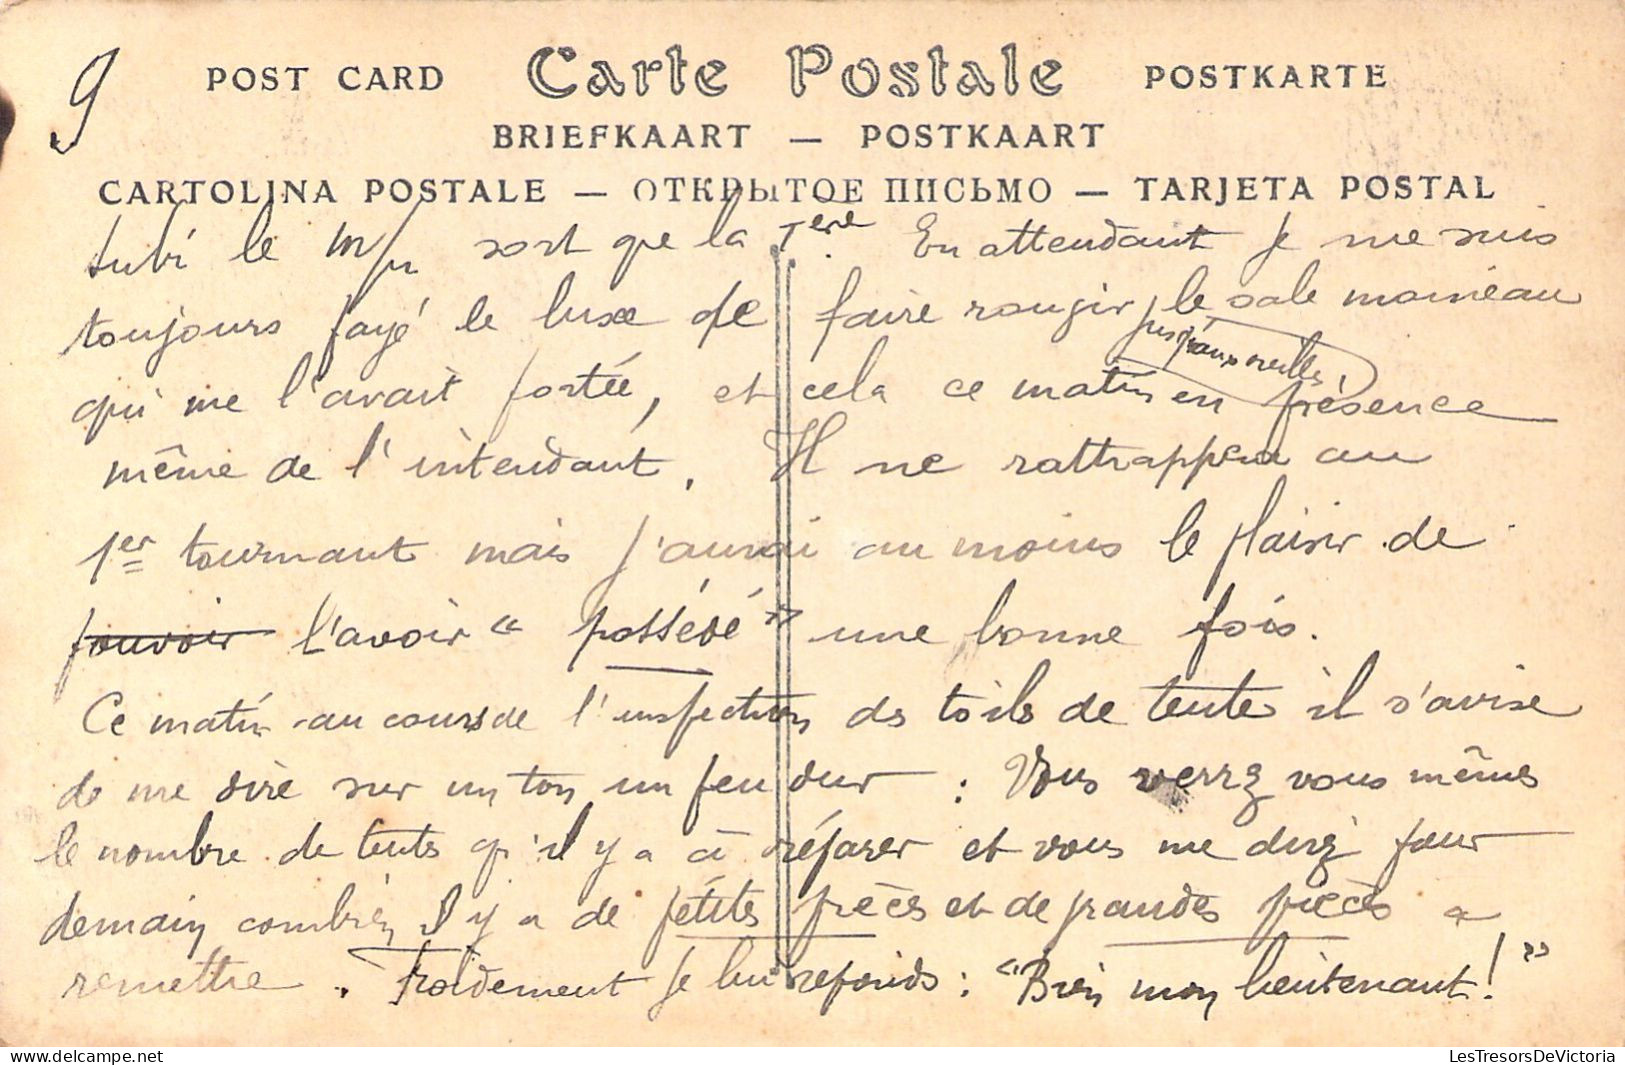 9
POST CARD Carte Postale POSTKARTE
BRIEFKAART — POSTKAART
CARTOLINA POSTALE — ОТКРЫТОЕ ПИСЬМО — TARJETA POSTAL
subi le sort que la En attendant je me suis
toujours payé le luxe de faire rougir le sale moineau
jusqu'aux oreilles,
qui me l'avait portée, et cela ce matin en présence
même de l'intendant. Il ne rattrappera au
1er tournant mais j'aurai au moins le plaisir de
pouvoir l'avoir " possédé " une bonne fois.
Ce matin au cours de l'inspection des toils de tente il s'avise
de me dire sur un ton un peu dur : Vous verrez vous mêmes
le nombre de tents qu'il y a à réparer et vous me direz pour
demain combien il y a de pétits pièces et de grandes pièces a
remettre. Froidement je lui reponds : "Bien mon lieutenant! "
LesTresorsDeVictoria
https://www.delcampe.net